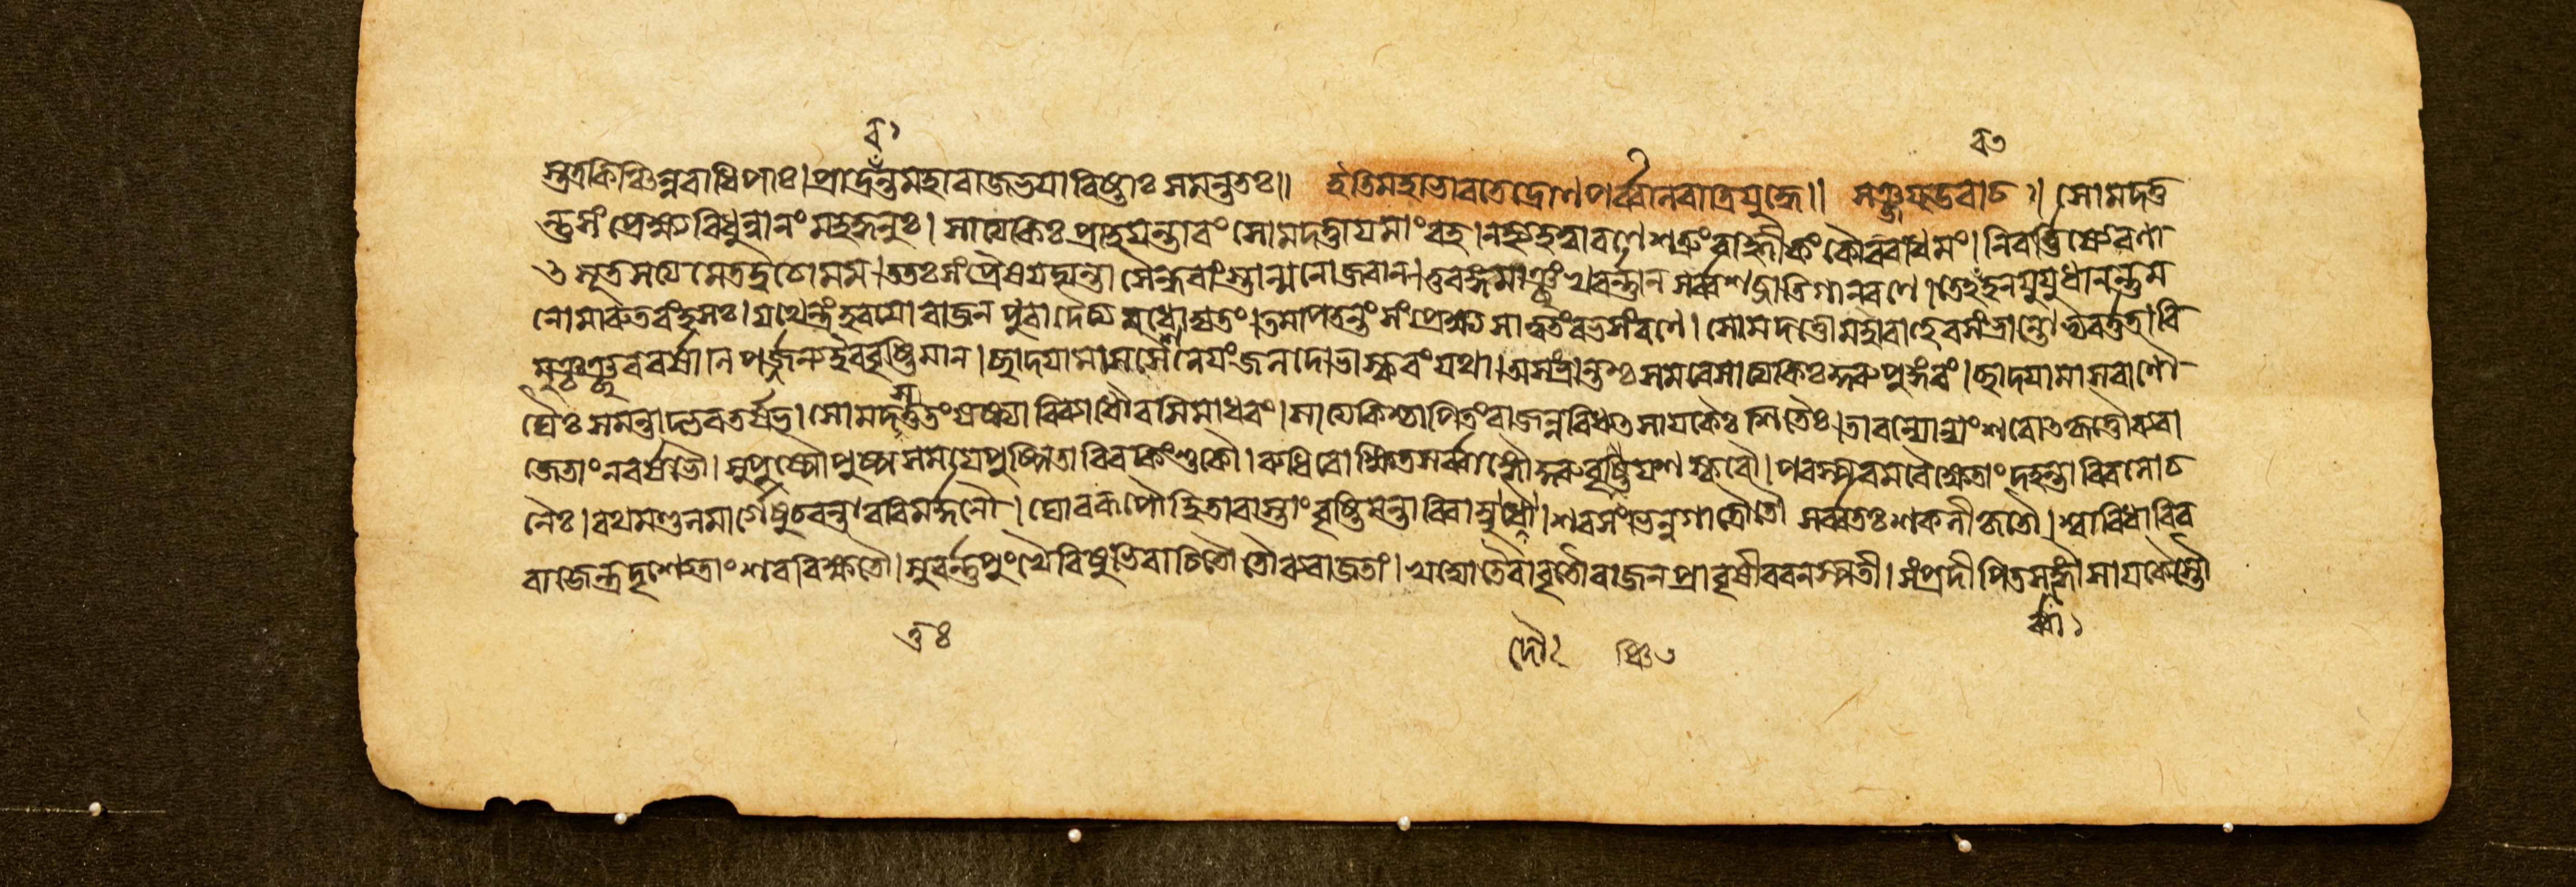 স্তত্রকিঞ্চিন্নরাধিপাঃ। প্রাদ্রবঁন্তমহারাজভয়াবিষ্টাঃ সমন্ততঃ॥ ইতিমহাভারতেদ্রোণপর্ব্বানিরাত্রিযুদ্ধে॥ সঞ্জয়উবাচ। সোমদত্ত
ন্তুসংপ্রেক্ষ্যবিধুন্বানং মহদ্ধনুঃ। সাত্যকিঃ প্রাহযন্তারং সোমদত্তায়মাংবহ। নহ্যহত্বারণেশত্রুংবাহ্লীকং কৌরবাধমং। নিবর্ত্তিষ্যেরণা
ৎসূতসত্যমেতদ্বচোমম। ততঃ সংপ্রৈষয়দ্যন্তা সৈন্ধবাংস্তান্মনোজবান। তুরঙ্গমাঞ্ছংখবর্ন্নান সর্ব্বশব্দাতিগানরণে। তেঽবহনযুযুধানন্তুম
নোমারুতরংহসঃ। যথেন্দ্রং হরয়োরাজন পুরাদৈত্যবধোদ্যতং। তমাপতন্তং সংপ্রেক্ষ্য সাত্বতংরভসংরণে। সোমদত্তোমহাবাহুরসংভ্রান্তোভ্যবর্ত্তত। বি
মুঞ্চঞ্ছরবর্ষানি পর্জ্জন্যইববৃষ্টিমান। ছাদয়ামাসশৈনেয়ংজলদোভাস্করং যথা। অসংভ্রান্তশ্চ সমরেসাত্যকিঃ কুরুপুঙ্গবং। ছাদয়ামাসবাণৌ
ঘৈঃ সমন্তাদ্ভরতর্ষভ। সোমদত্তস্তুতংষষ্ট্যাবিব্যাধোরসিমাধবং। সাত্যকিশ্চাপিতংরাজন্নবিধ্যৎ সায়কৈঃ শিতৈঃ। তাবন্যোন্যং শরৈঃকৃত্তৌব্যরা
জেতাংনরর্ষভৌ। সুপুষ্পৌপুষ্পসময়েপুষ্পিতাবিবকিংশুকৌ। রুধিরোক্ষিতসর্ব্বাঙ্গৌকুরুবৃষ্ণিযশস্করৌ। পরস্পরমবেক্ষেতাং দহন্তাবিবলোচ
নৈঃ। রথমণ্ডলমার্গেষুচরন্তাবরিমর্দ্দনৌ। ঘোররূপৌহিতাবাস্তাং বৃষ্টিমন্তাবিবাম্বুদৌ। শরসংভিন্নগাত্রৌতৌ সর্ব্বতঃ শকলীকৃতৌ। শ্বাবিধাবিব
রাজেন্দ্রদৃশেতাংশরবিক্ষতৌ। সুবর্ন্নপুংখৈরিষুভিরাচিতৌ তৌব্যরাজতাং। খদ্যোতৈরাবৃতৌরাজনপ্রাবৃষীববনস্পতী। সংপ্রদীপিতসর্ব্বাঙ্গৌসায়কৈস্তৌ